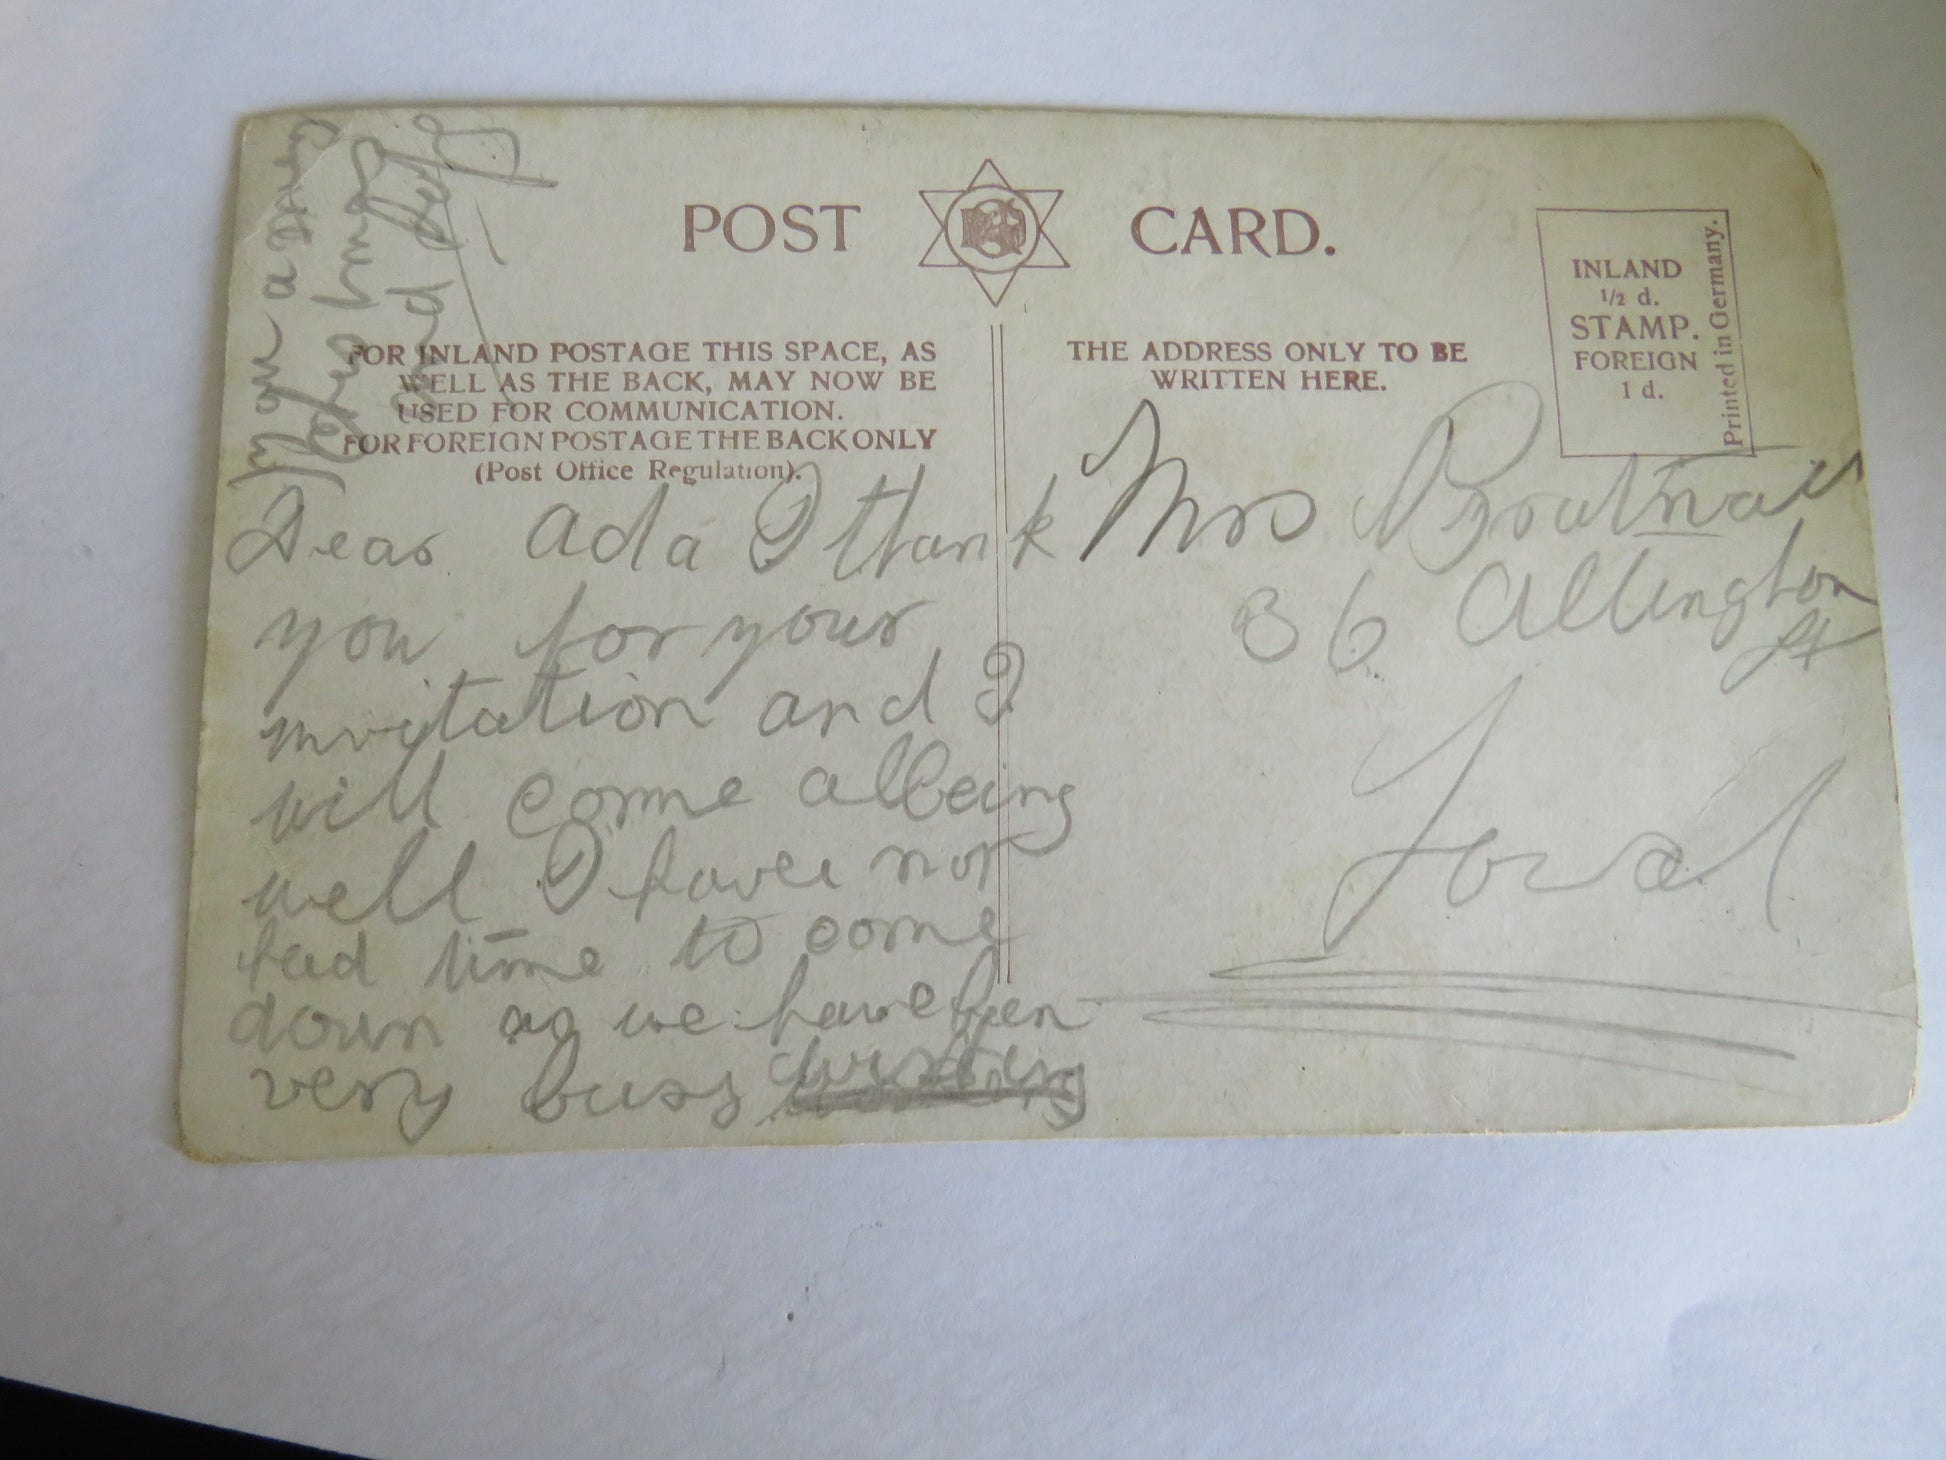 POST CARD.
INLAND
1/2 d.
STAMP.
FOREIGN
1 d.
Printed in Germany.
FOR INLAND POSTAGE THIS SPACE, AS
WELL AS THE BACK, MAY NOW BE
USED FOR COMMUNICATION.
FOR FOREIGN POSTAGE THE BACK ONLY
(Post Office Regulation).
THE ADDRESS ONLY TO BE
WRITTEN HERE.
Dear Ada I thank
you for your
invitation and I
will come all being
well I have not
had time to come
down as we have been
very busy
you a
and
Mrs
36 Allington
St